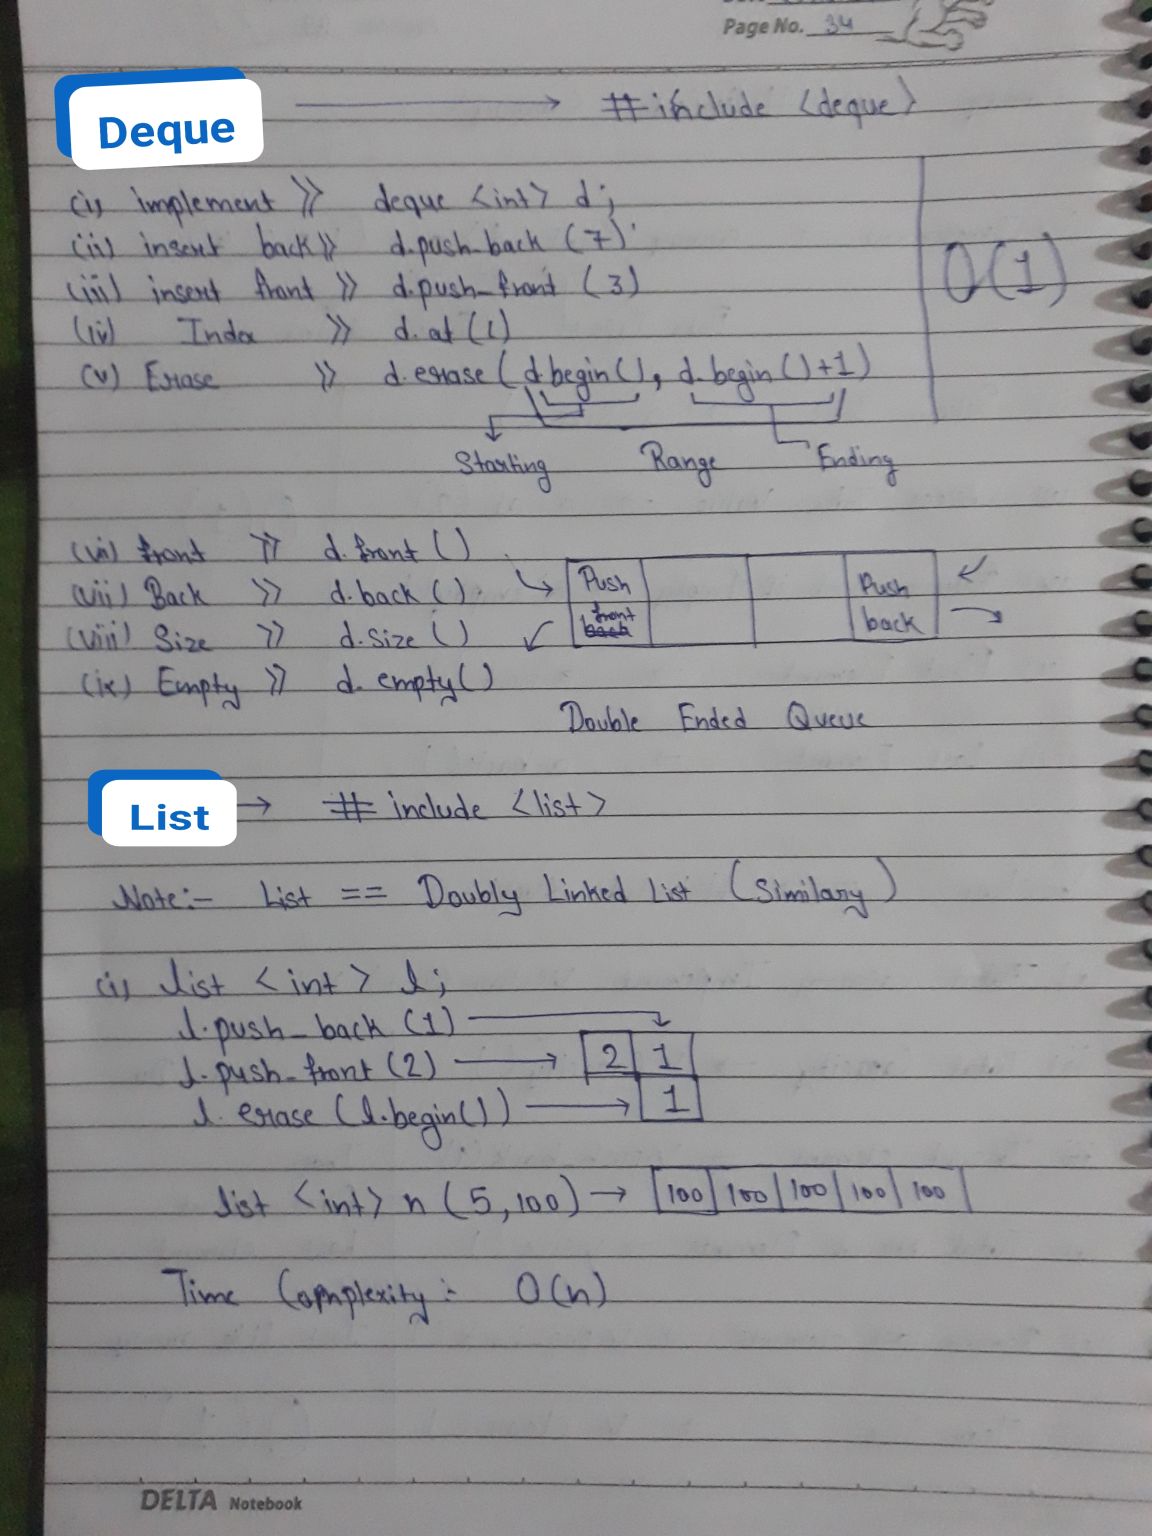 Page No. 34
Deque → #include <deque>
(i) implement >> deque <int> d;
(ii) insert back >> d.push_back (7)
(iii) insert front >> d.push_front (3)
(iv) Index >> d.at(1)
(v) Erase >> d.erase(d.begin(), d.begin()+1)
O(1)
Starting Range Ending
(vi) front >> d.front ()
(vii) Back >> d.back ()
(viii) Size >> d.size ()
(ix) Empty >> d.empty()
Push Push
front
back back
Double Ended Queue
List → #include <list>
Note:- List == Doubly Linked List (Similary)
(i) list <int> l;
l.push_back (1)
l.push_front (2) → 2 1
l.erase (l.begin()) → 1
list <int> n (5,100) → 100 100 100 100 100
Time Complexity:- O(n)
DELTA Notebook